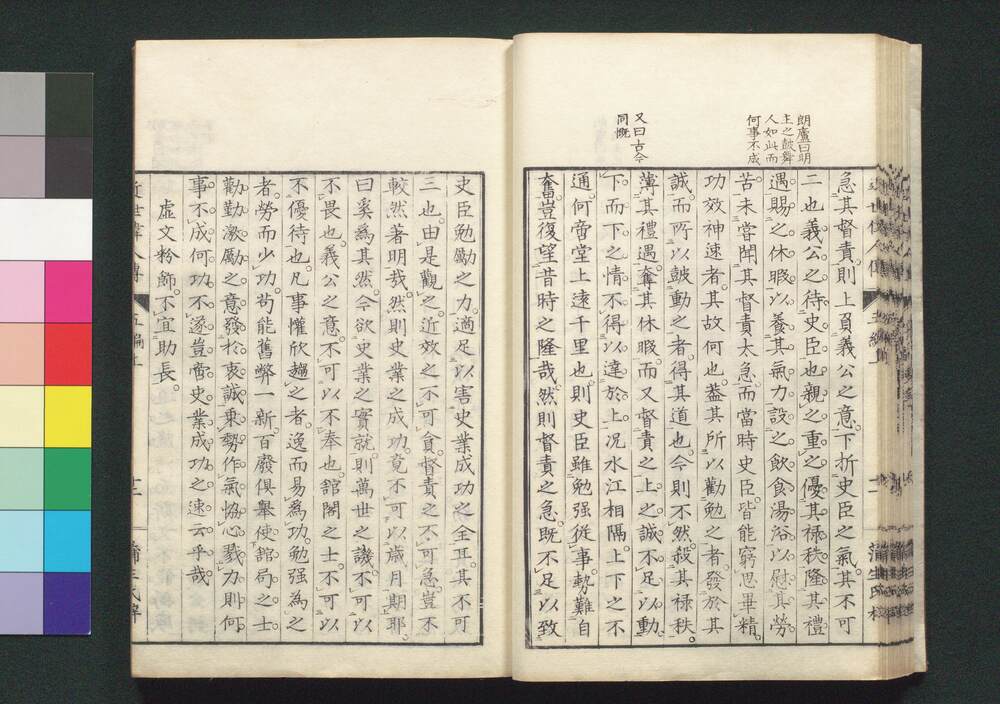 朗廬曰明
主之鼓舞
人如此而
何事不成
又曰古今
同慨
急其督責則上負義公之意下折史臣之氣其不可
二也義公之待史臣也親之重之優其祿秩隆其禮
遇賜之休暇以養其氣力設之飲食湯浴以慰其勞
苦未嘗聞其督責太急而當時史臣皆能窮思畢精
功效神速者其故何也蓋其所以勸勉之者發於其
誠而所以鼓動之者得其道也今則不然殺其祿秩
薄其禮遇奪其休暇而又督責之上之誠不足以動
下而下之情不得以達於上況水江相隔上下之不
通何啻堂上遠千里也則史臣雖勉强從事勢難自
奮豈復望昔時之隆哉然則督責之急既不足以致
史臣勉勵之力適足以害史業成功之全其其不可
三也由是觀之近效之不可貪督責之不可急豈不
較然著明哉然則史業之成功竟不可以歲月期耶
曰奚為其然今欲史業之實就則萬世之譏不可以
不畏也義公之意不可以不奉也舘閣之士不可以
不優待也凡事懽欣趨之者逸而易為功勉强為之
者勞而少功苟能舊弊一新百廢俱舉使舘局之士
勸勤激勵之意發於衷誠乘勢作氣恊心戮力則何
事不成何功不遂豈啻史業成功之速云乎哉
虛文粉飾不宜助長
近世偉人傳
五編上
十二
蒲生氏梓